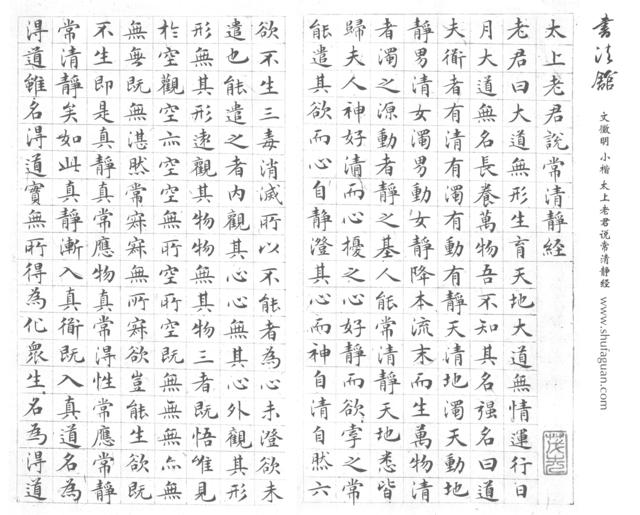 書法舘
文徵明 小楷 太上老君说常清静经 www.shufaguan.com
太上老君說常清靜經
老君曰大道無形生育天地大道無情運行日
月大道無名長養萬物吾不知其名强名曰道
夫衜者有清有濁有動有靜天清地濁天動地
靜男清女濁男動女靜降本流末而生萬物清
者濁之源動者靜之基人能常清靜天地悉皆
歸夫人神好清而心擾之心好靜而欲牽之常
能遣其欲而心自靜澄其心而神自清自然六
欲不生三毒消滅所以不能者為心未澄欲未
遣也能遣之者內觀其心心無其心外觀其形
形無其形遠觀其物物無其物三者既悟唯見
於空觀空亦空空無所空所空既無無無亦無
無無既無湛然常寂寂無所寂欲豈能生欲既
不生即是真靜真常應物真常得性常應常靜
常清靜矣如此真靜漸入真衜既入真道名為
得道雖名得道實無所得為化眾生名為得道